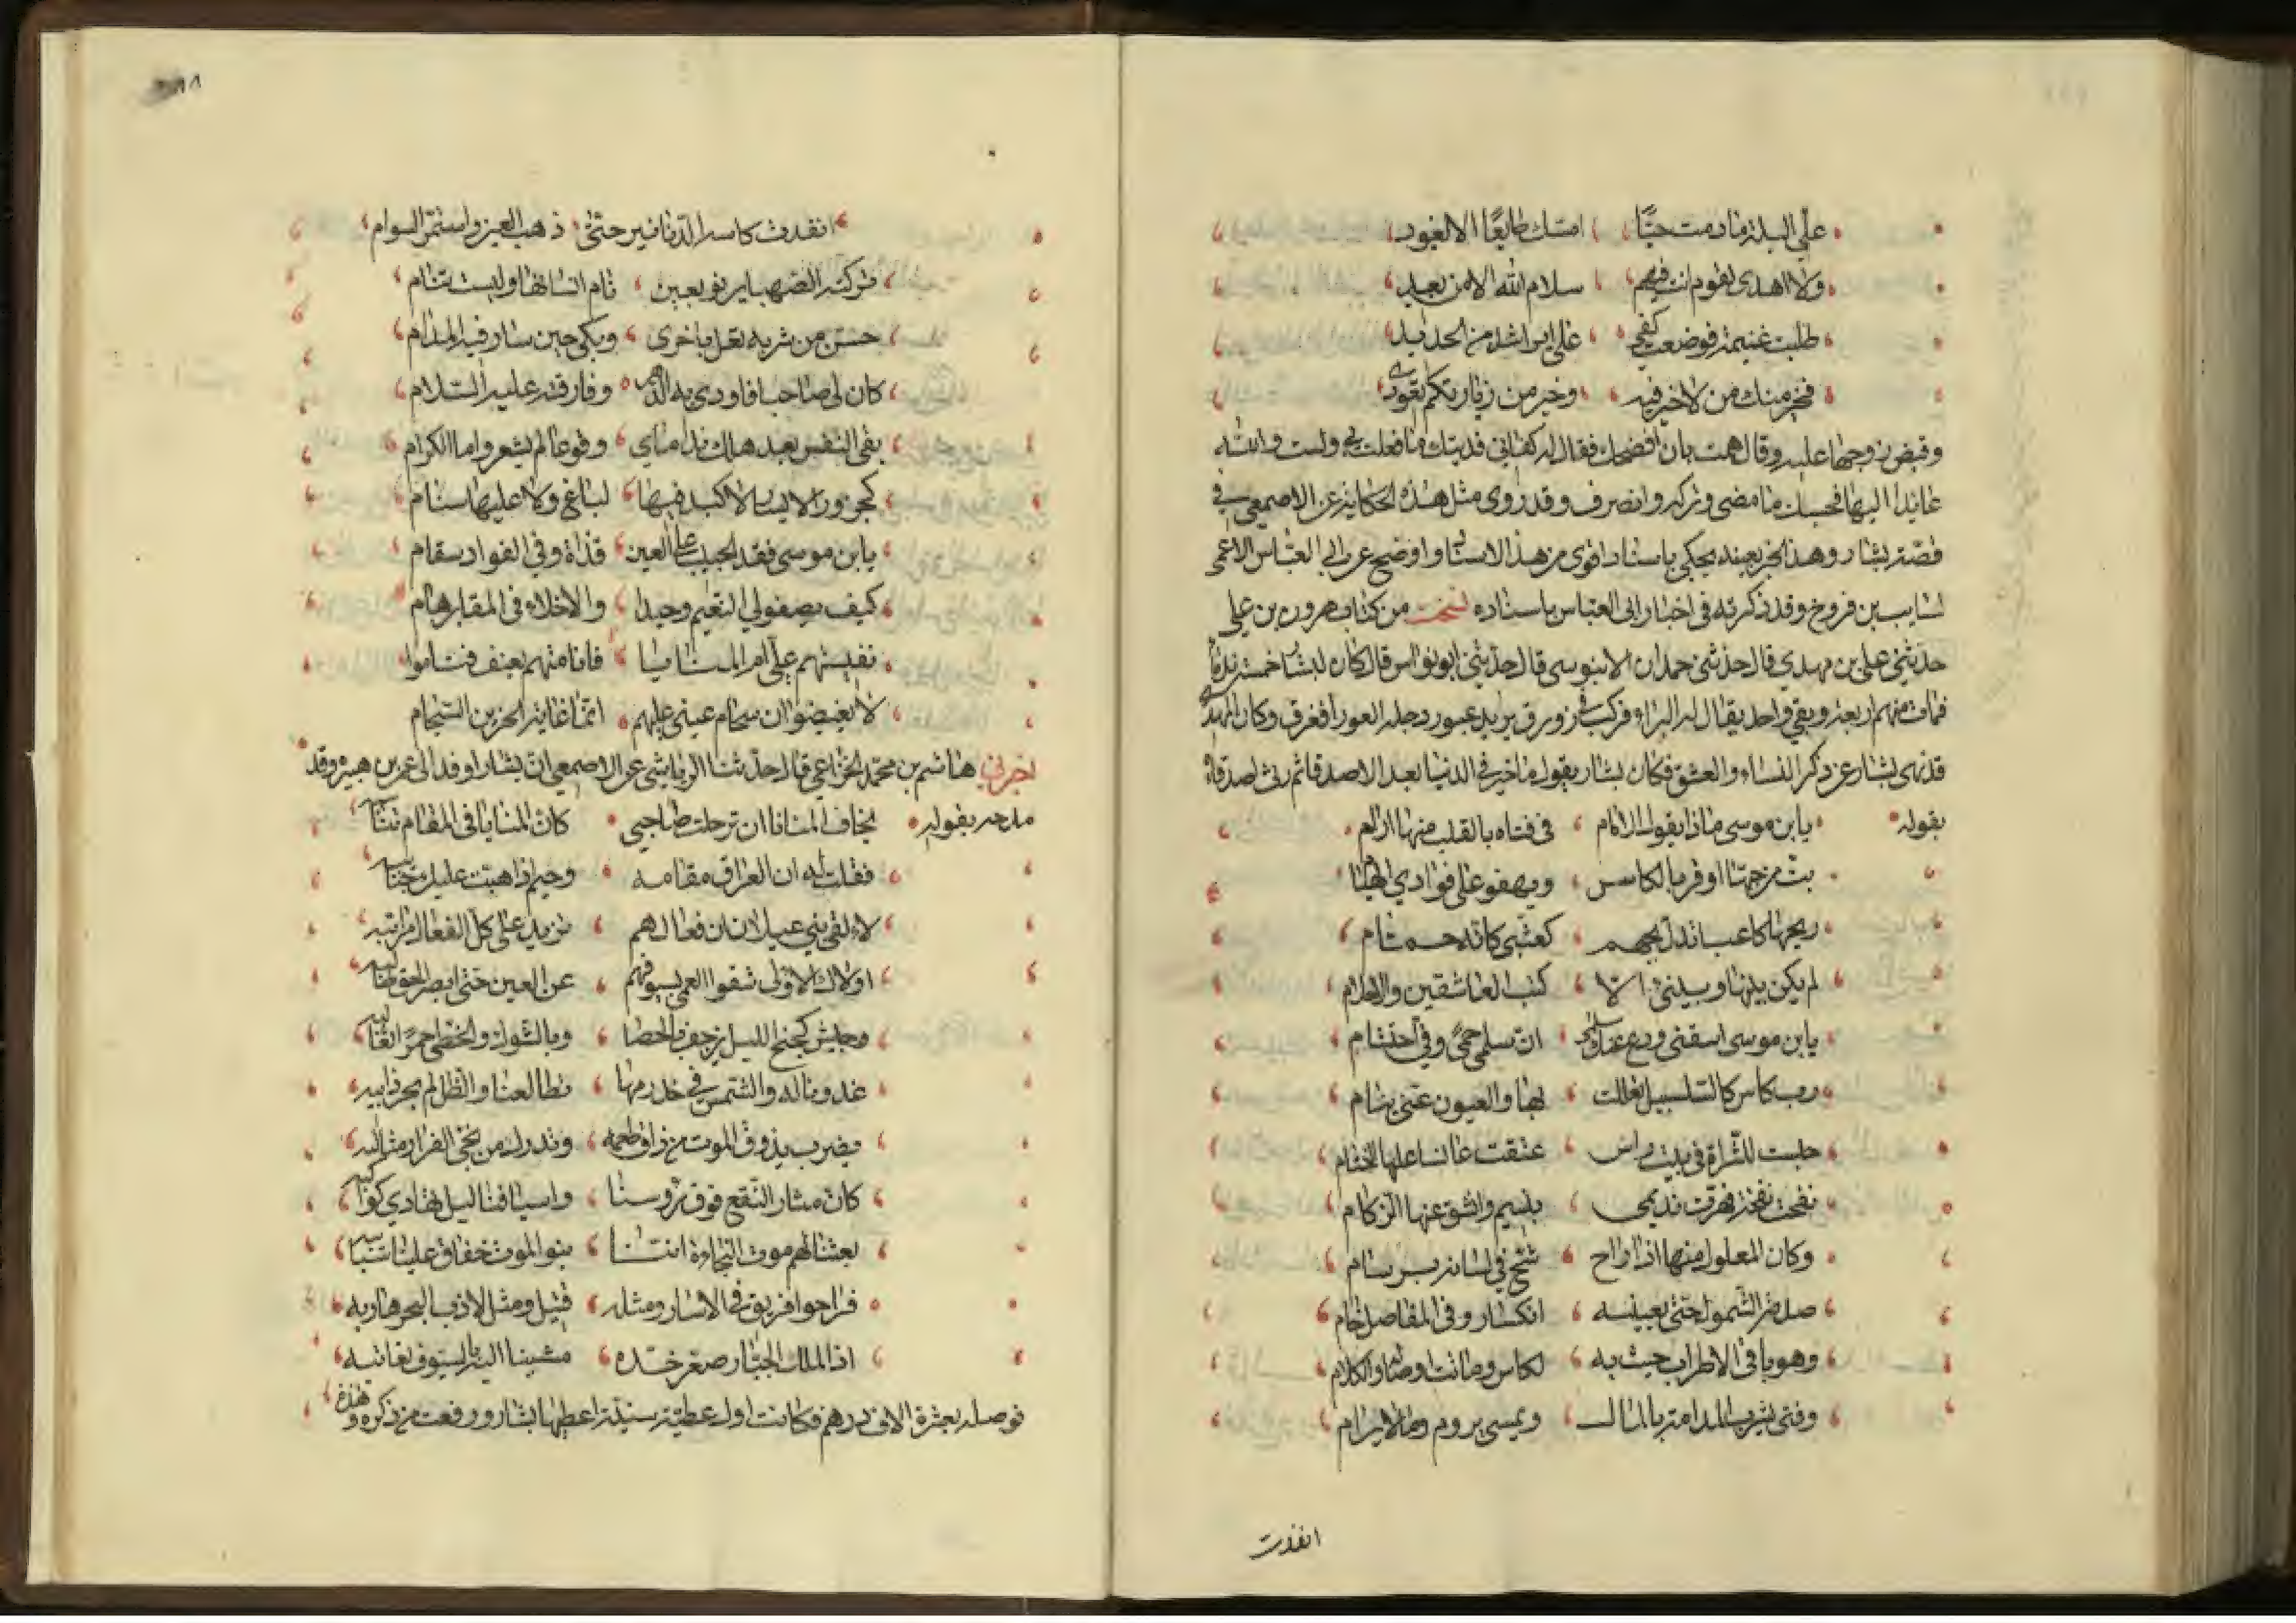 علي البلة ما دمت حيًّا امسك طايعًا الا لغيود
ولا اهدى لقوم انت فيهم سلام الله الا من بعيد
طلبت غنيمة فوضعت كفي على اير اشد من الحديد
فخير منك من لا خير فيه وخير من زيارتكم قعودى
وقبض زوجها عليه وقال هممت بان افضحك فقال له كفانى فديتك ما فعلت بى ولست والله
عايدا اليها فحسبك ما مضى وتركه وانصرف وقد روى مثل هذه الحكاية عن الاصمعى فى
قصة بشار وهذا الخبر بعينه يحكى باسناد اقوى من هذا الاسناد واوضح عن ابي العباس الاعمى
السايب بن فروخ وقد ذكرته فى اخبار ابى العباس باسناده نسخت من كتاب هرون بن علي
حدثنى على بن مهدي قال حدثنى حمدان الابنوسى قال حدثنى ابو نواس قال كان لبشار خمسة ندما
فمات منهم اربعة وبقي واحد يقال له البراء فركب فى زورق يريد عبور دجلة العورا فغرق وكان المهدى
قد نهى بشار عن ذكر النساء والعشق فكان بشار يقول ما خير فى الدنيا بعد الاصدقا ثم رثى اصدقاه
بقوله يابن موسى ماذا يقول الامام فى فتاه بالقلب منها اوام
بت من حبها اوقر بالكاس ويهفو على فوادي الهيام
ويحها كاعبا تدل بجهم كعثبى كانه حمام
لم يكن بينها وبينى الا كتب العاشقين والاحلام
يابن موسى اسقنى ودع عنك سلمى ان سلمى حمىً وفى احتشام
رب كاس كالسلسبيل تعللت بها والعيون عنى نيام
حبست للشراة فى بيت راس عتقت عانسا عليها الختام
نفحت نفحة فهزت نديمى بنسيم وانشق عنها الزكام
وكان المعلول منها اذا راح شج فى لسانه برسام
صدمته الشمول حتى بعينيه انكسار وفى المفاصل خام
وهو باقى الاطراف حيث به لكاس وماتت اوصاله والكلام
وفتى يشرب المدامة بالمال ويمسى يروم ما لا يرام
انفدت
انفدت كاسه الدنانير حتى ذهب العين واستمر السوام
تركته الصهبا يرنو بعين نام انسانها وليست تنام
جن من شربه تعل باخرى وبكى حين سار فيه المدام
كان لى صاحبا فاودى به الدهر وفارقته عليه السلام
بقى النفس بعد هلك نداماي وقوعا لم يشعروا ما الكرام
كجزور الايسار لا كبد فيها لباغ ولا عليها سنام
يابن موسى فقد الحبيب على العين قذاة وفى الفواد سقام
كيف يصفو لي النعيم وحيدا والاخلاء فى المقابر هام
نفستهم علي ام المنايا فانامتهم بعنف فناموا
لا يغيض انسجام عينى عليهم انما غاية الحزين السجام
اخبرنى هاشم بن محمد الخزاعى قال حدثنا الرياشى عن الاصمعى ان بشارا وفد الى عمر بن هبيره وقد
مدحه بقوله يخاف المنايا ان ترحلت صاحبى كان المنايا فى المقام تناسبه
فقلت له ان العراق مقامه وخيم اذا هبت عليك جنايبه
لالقى بنى عيلان ان فعالهم تزيد على كل الفعال مراتبه
اولاك الاولى شقوا العمى بسيوفهم عن العين حتى ابصر الحق طالبه
وجيش كجنح الليل يزحف بالحصا وبالشوك والخطى حمرًا ثعالبه
غدونا له والشمس فى خدر امها تطالعنا والظل لم يجر ذايبه
بضرب يذوق الموت من ذاق طعمه وتدرك من نجى الفرار مثالبه
كان مثار النقع فوق رؤسنا واسيافنا ليل تهادي كواكبه
بعثنا لهم موت الفجاءة اننا بنو الموت خفاق علينا سبايبه
فراحوا فريق فى الاسار ومثله قتيل ومثل لاذ بالبحر هاربه
اذا الملك الجبار صعر خده مشينا اليه بالسيوف نعاتبه
فوصله بعشرة الاف درهم فكانت اول عطية سنية اعطيها بشار ورفعت من ذكره وهذه